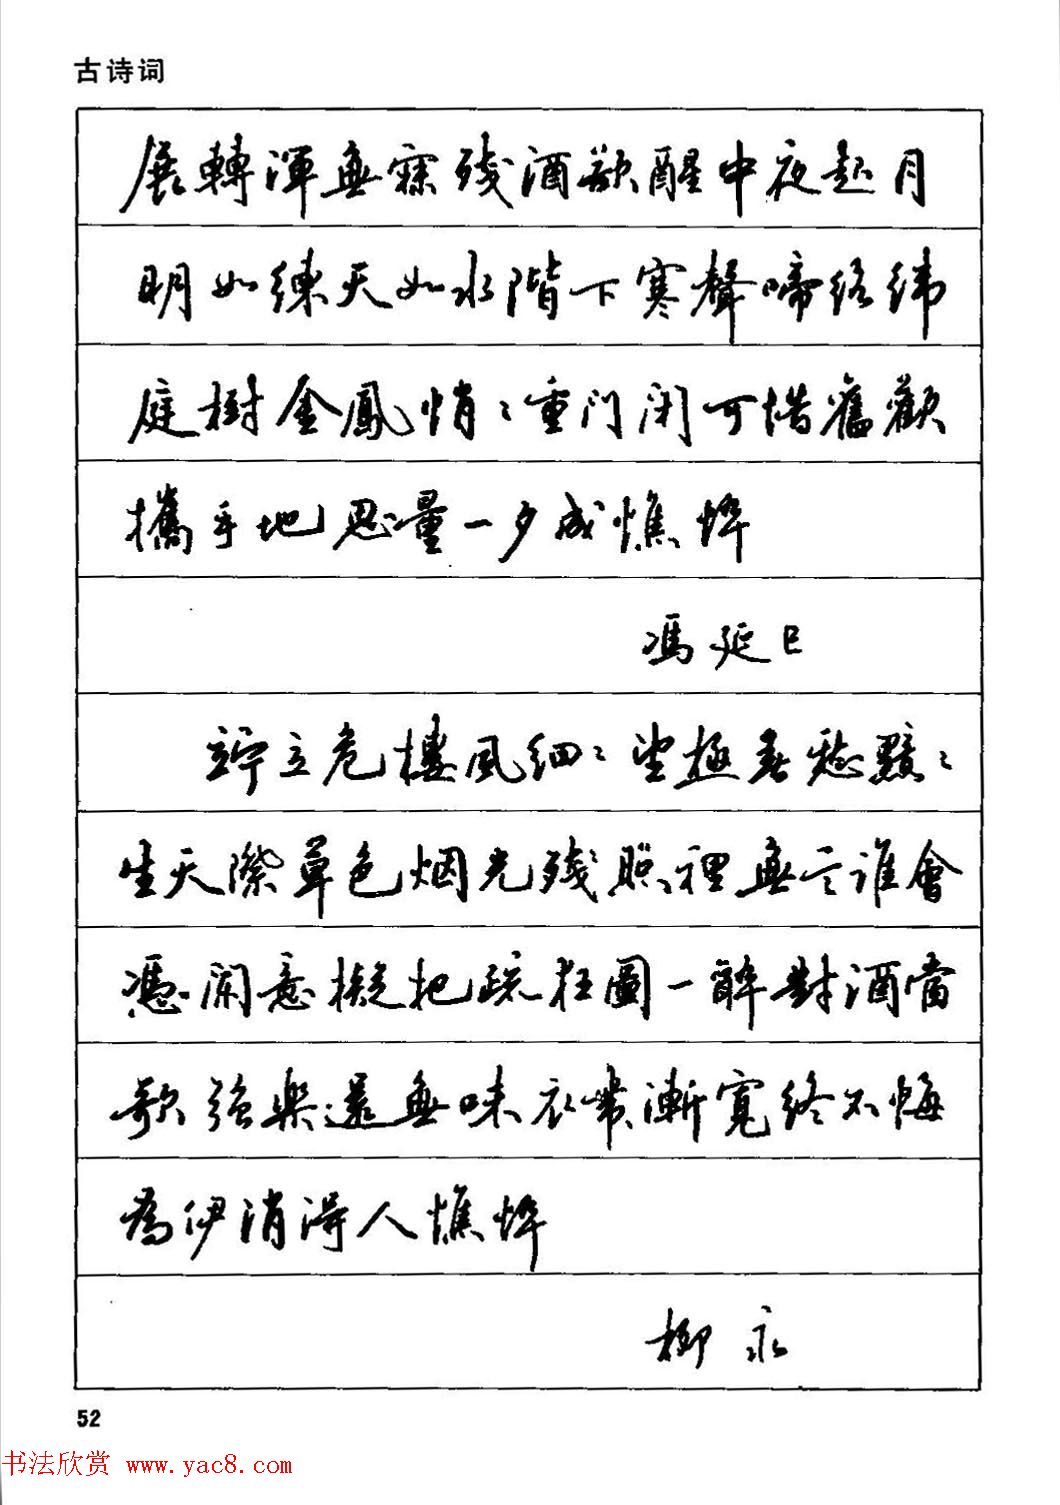 古诗词
展轉渾無寐殘酒欲醒中夜起月
明如練天如水階下寒聲啼络緯
庭樹金鳳悄々重门闭可惜舊歡
攜手地思量一夕成憔悴
馮延巳
竚立危樓風细々望極春愁黯々
生天際草色烟光殘照裡無言谁會
憑闌意擬把疏狂圖一醉對酒當
歌強樂還無味衣帶漸寬终不悔
為伊消得人憔悴
柳永
52
书法欣赏 www.yac8.com